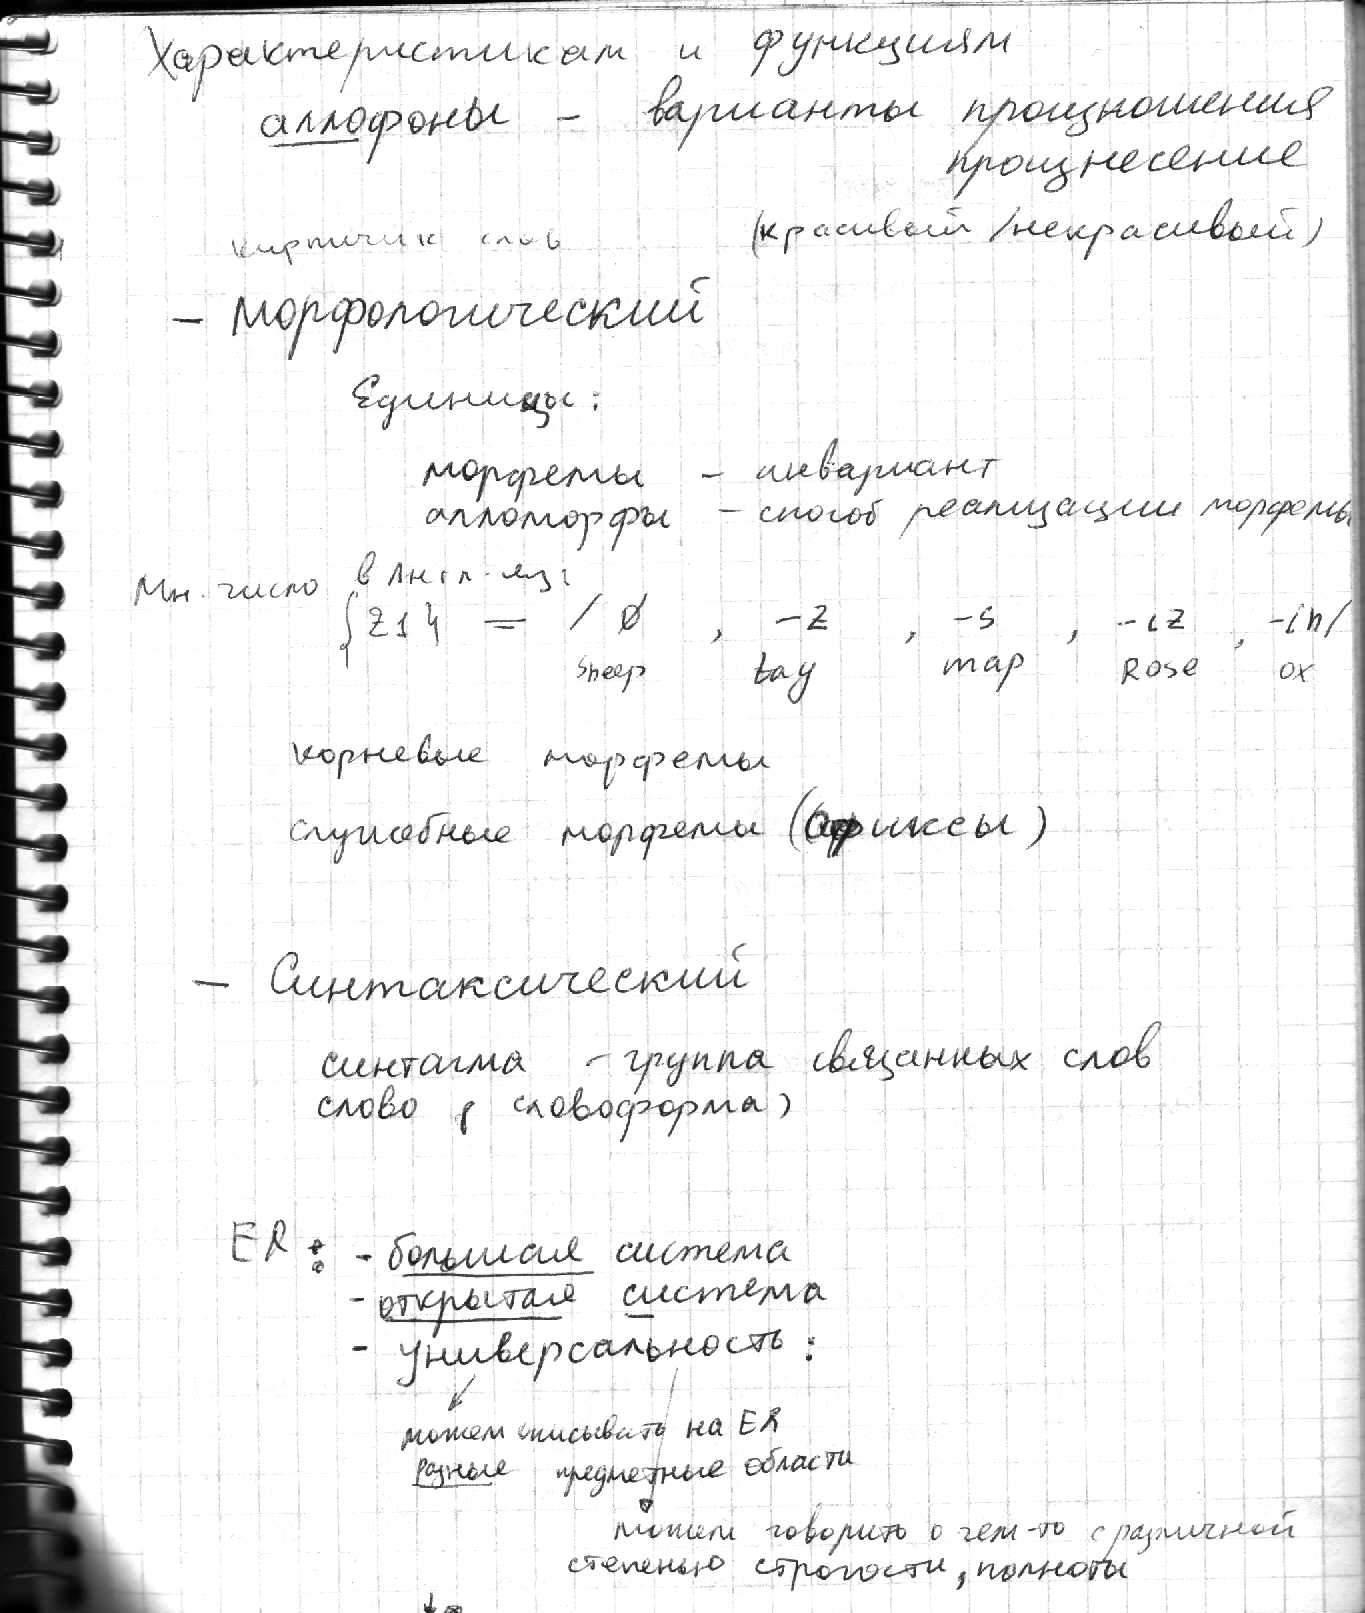 Характеристикам и функциям
аллофоны - варианты произношения
произнесение
кирпичик слов (красивый/некрасивый)
- Морфологический
Единицы:
морфемы - инвариант
алломорфы - способ реализации морфемы
Мн. число в Англ. яз:
{Z1} = / Ø , -z , -s , -iz , -in/
sheep bay map Rose ox
корневые морфемы
служебные морфемы (афиксы)
- Синтаксический
синтагма - группа связанных слов
слово ( словоформа)
ЕЯ: - большая система
- открытая система
- универсальность:
можем описывать на ЕЯ
разные предметные области
можем говорить о чем-то с различной
степенью строгости, полноты